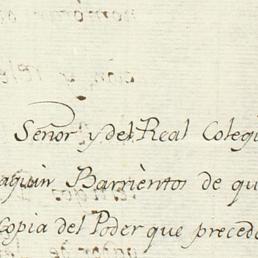 Señor y del Real Colegi
aquin Barrientos de qu
copia del Poder que precede